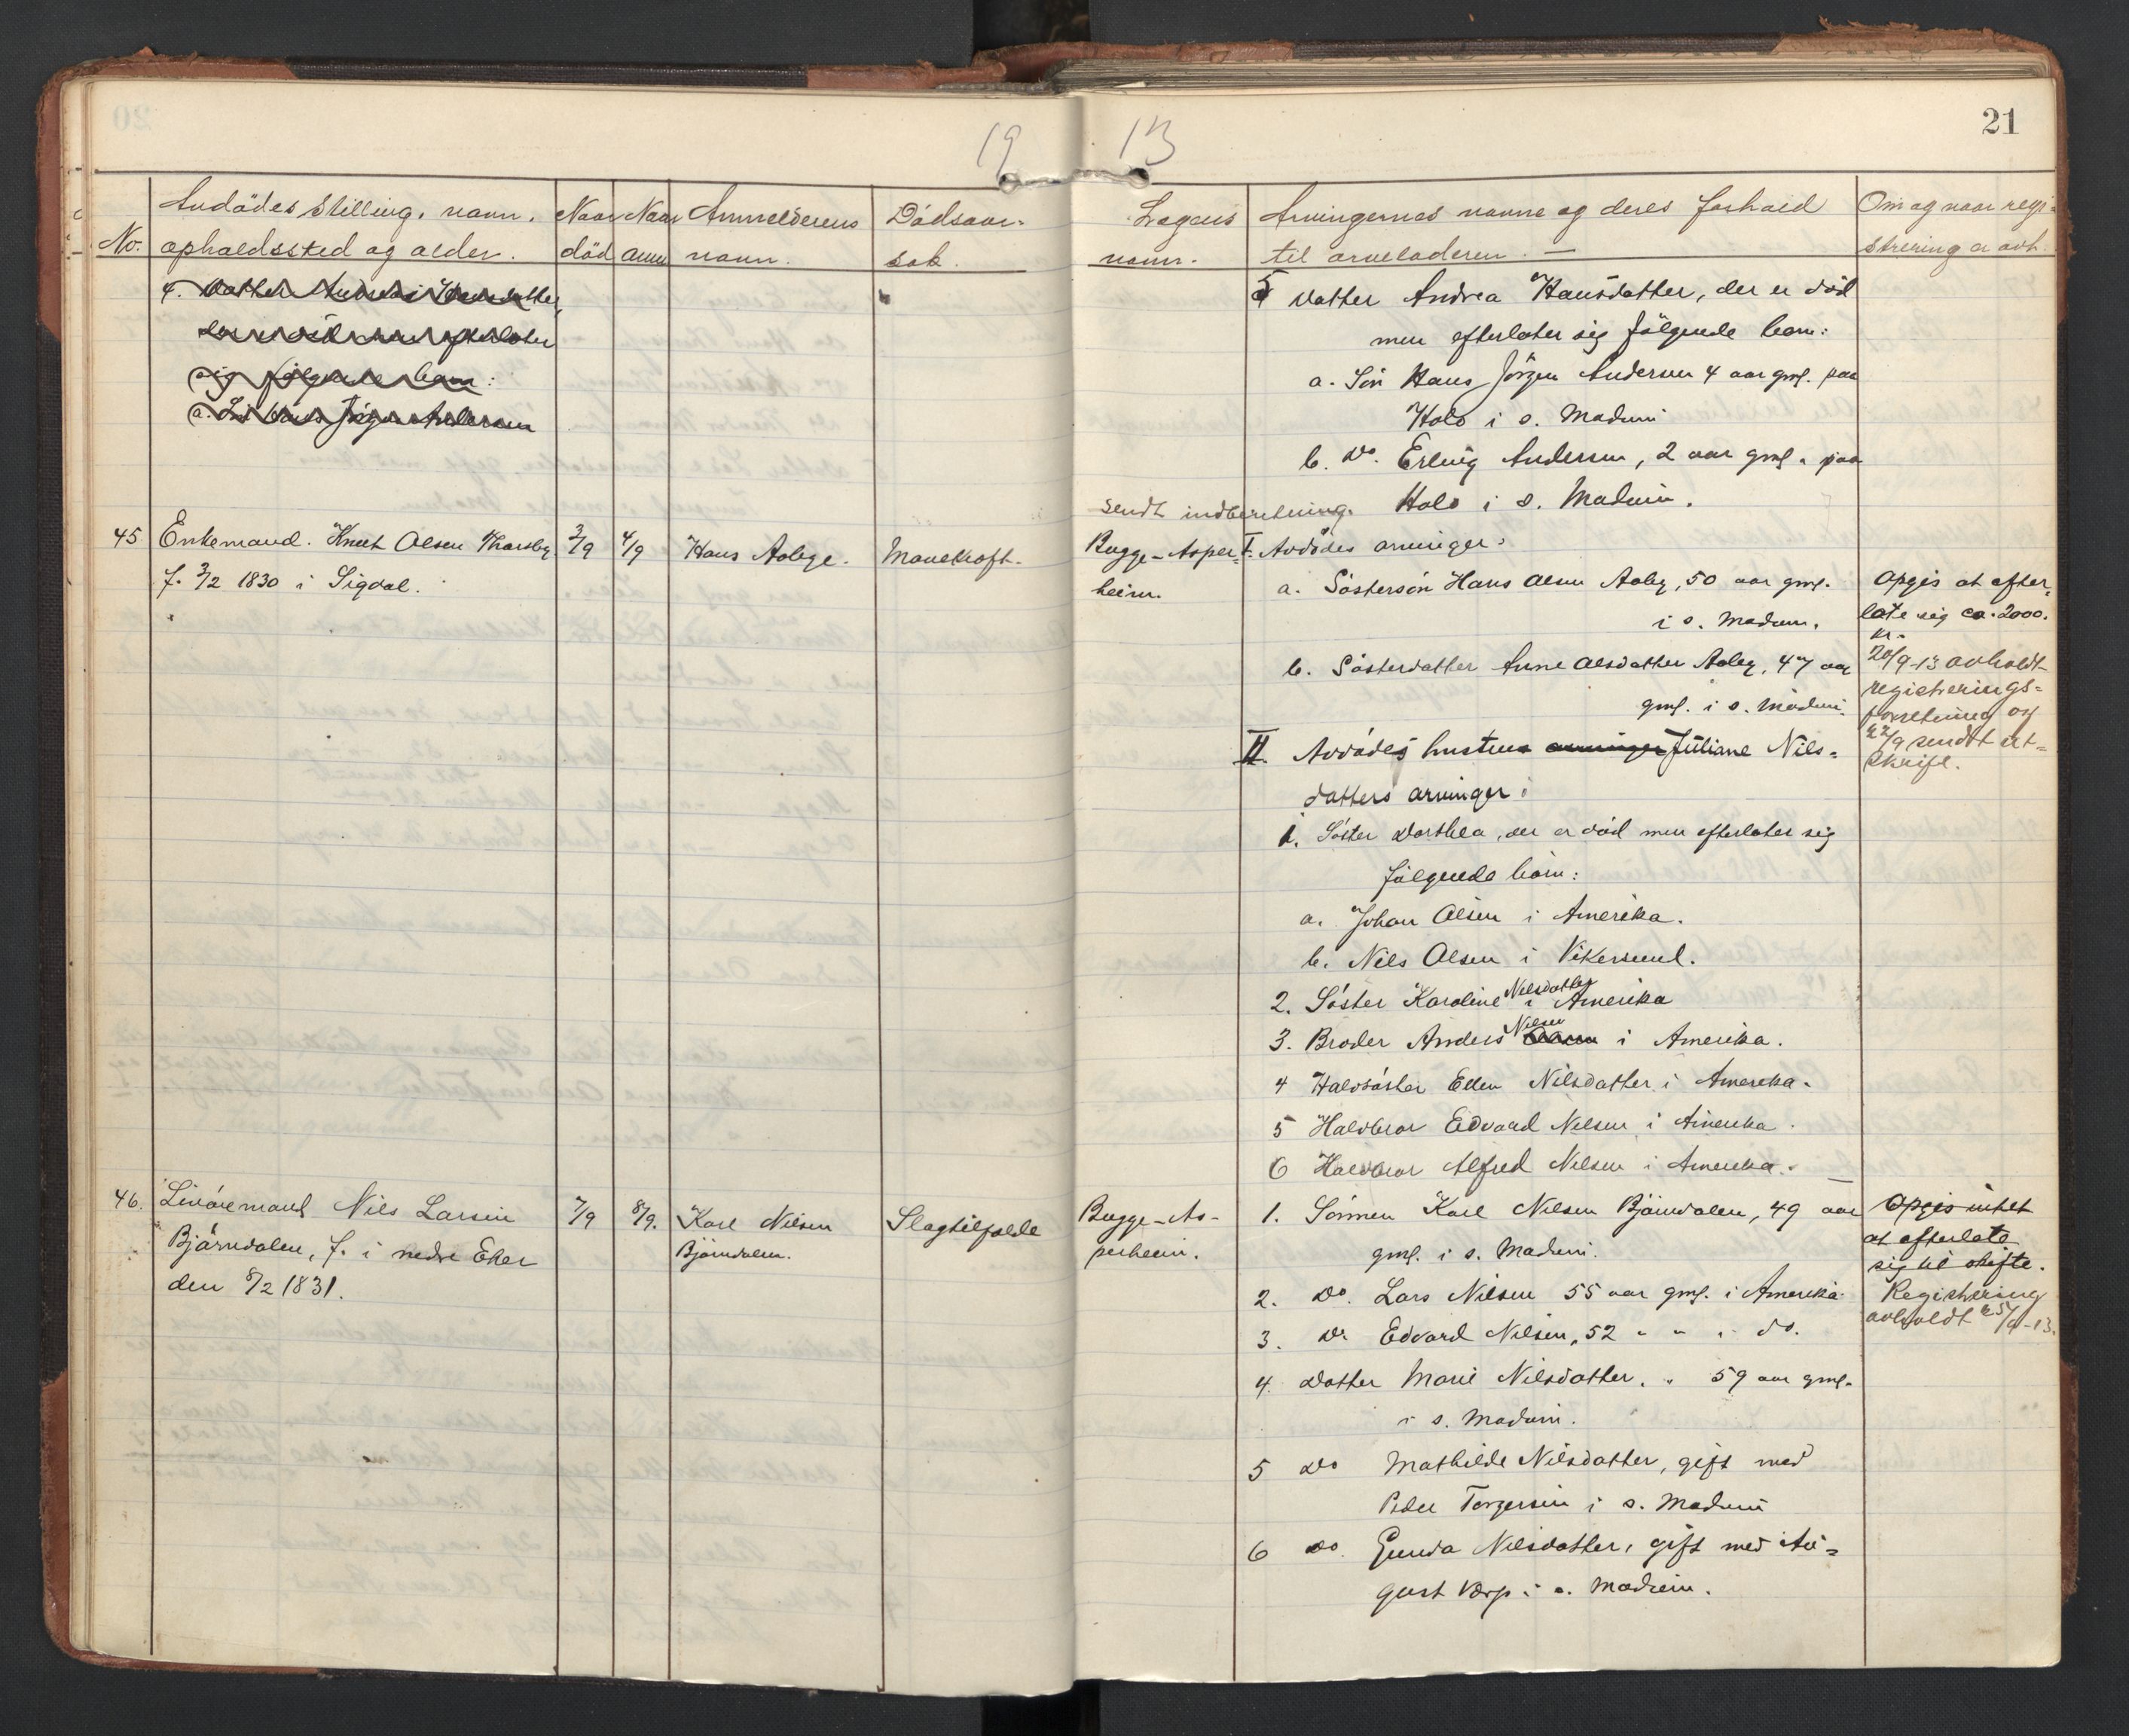 21
1913
No.
Avdödes stilling, navn,
opholdssted og alder.
Naar
död
Naar
anm
Anmelderens
navn.
Dödsaar-
sak.
Lægens
navn.
Arvingernes navne og deres forhold
til arveladeren. —
Om og naar regi-
strering er avh.
4. Datter Andrea Hansdatter,
der er död men efterlater
sig følgende barn:
a. Sön Hans Jörgen Andersen
5 Datter Andrea Hansdatter, der er död
men efterlater sig fölgende barn:
a. Sön Hans Jörgen Andersen 4 aar gml. paa
Holo i s. Modum
b. Do. Erling Andersen, 2 aar gml. paa
Holo i s. Modum.
sendt indberetning.
45
Enkemand. Knut Olsen Thorsby
f. 3/2 1830 i Sigdal.
3/9
4/9
Hans Aaby.
Mavekræft.
Bugge-Asper-
heim.
I. Avdödes arvinger:
a. Söstersön Hans Olsen Aaby, 50 aar gml.
i s. Modum.
b. Sösterdatter Anne Olsdatter Aaby, 47 aar
gml. i s. Modum.
II. Avdödes hustru arvinger Juliane Nils-
datters arvinger:
1. Söster Dorthea, der er död men efterlater sig
fölgende barn:
a. Johan Olsen i Amerika.
b. Nils Olsen i Vikersund.
2. Söster Karoline Nilsdatter i Amerika
3. Broder Anders Nilsen i Amerika.
4 Halvsöster Ellen Nilsdatter i Amerika.
5 Halvbror Edvard Nilsen i Amerika.
6 Halvbror Alfred Nilsen i Amerika.
Opgis at efter-
late sig ca. 2000.
kr.
20/9-13 avholdt
registrerings-
forretning og
22/9 sendt ut-
skrift.
46.
Livöremand Nils Larsen
Björndalen, f. i nedre Eker
den 8/2 1831.
7/9
8/9.
Karl Nilsen
Björndalen.
Slagtilfælde
Bugge-As-
perheim.
1. Sönnen Karl Nilsen Björndalen, 49 aar
gml. i s. Modum.
2. Do. Lars Nilsen 55 aar gml. i Amerika.
3. Do Edvard Nilsen, 52 " " i do.
4. Datter Marie Nilsdatter, " 59 aar gml.
i s. Modum.
5 Do Mathilde Nilsdatter, gift med
Peder Torgersen i s. Modum
6 Do. Gunda Nilsdatter, gift med Au-
gust Vorp i s. Modum.
Opgis intet
at efterlate
sig til skifte.
Registrering
avholdt 25/9-13.